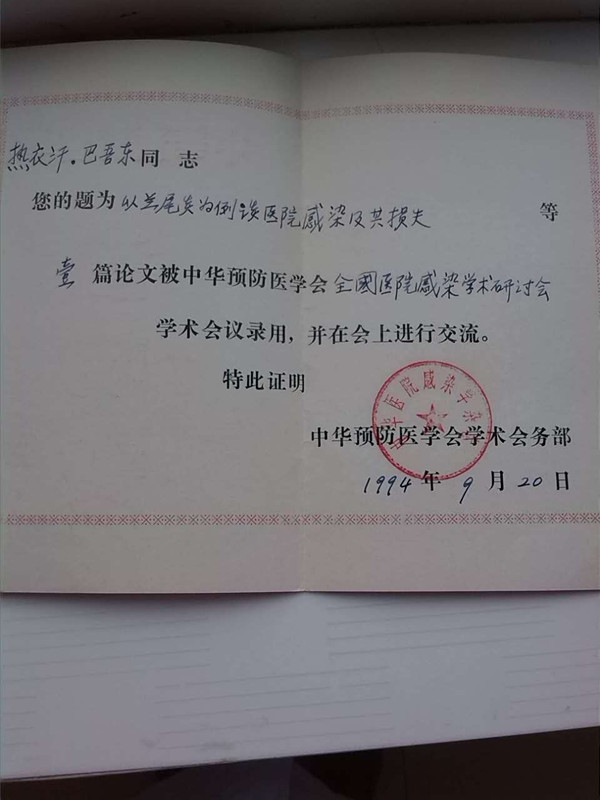 热衣汗·巴吾东同志
您的题为以兰尾炎为例谈医院感染及其损失 等
壹 篇论文被中华预防医学会全國医院感染学术研讨会
学术会议录用,并在会上进行交流。
特此证明
中华医院感染学杂
中华预防医学会学术会务部
1994年9月20日